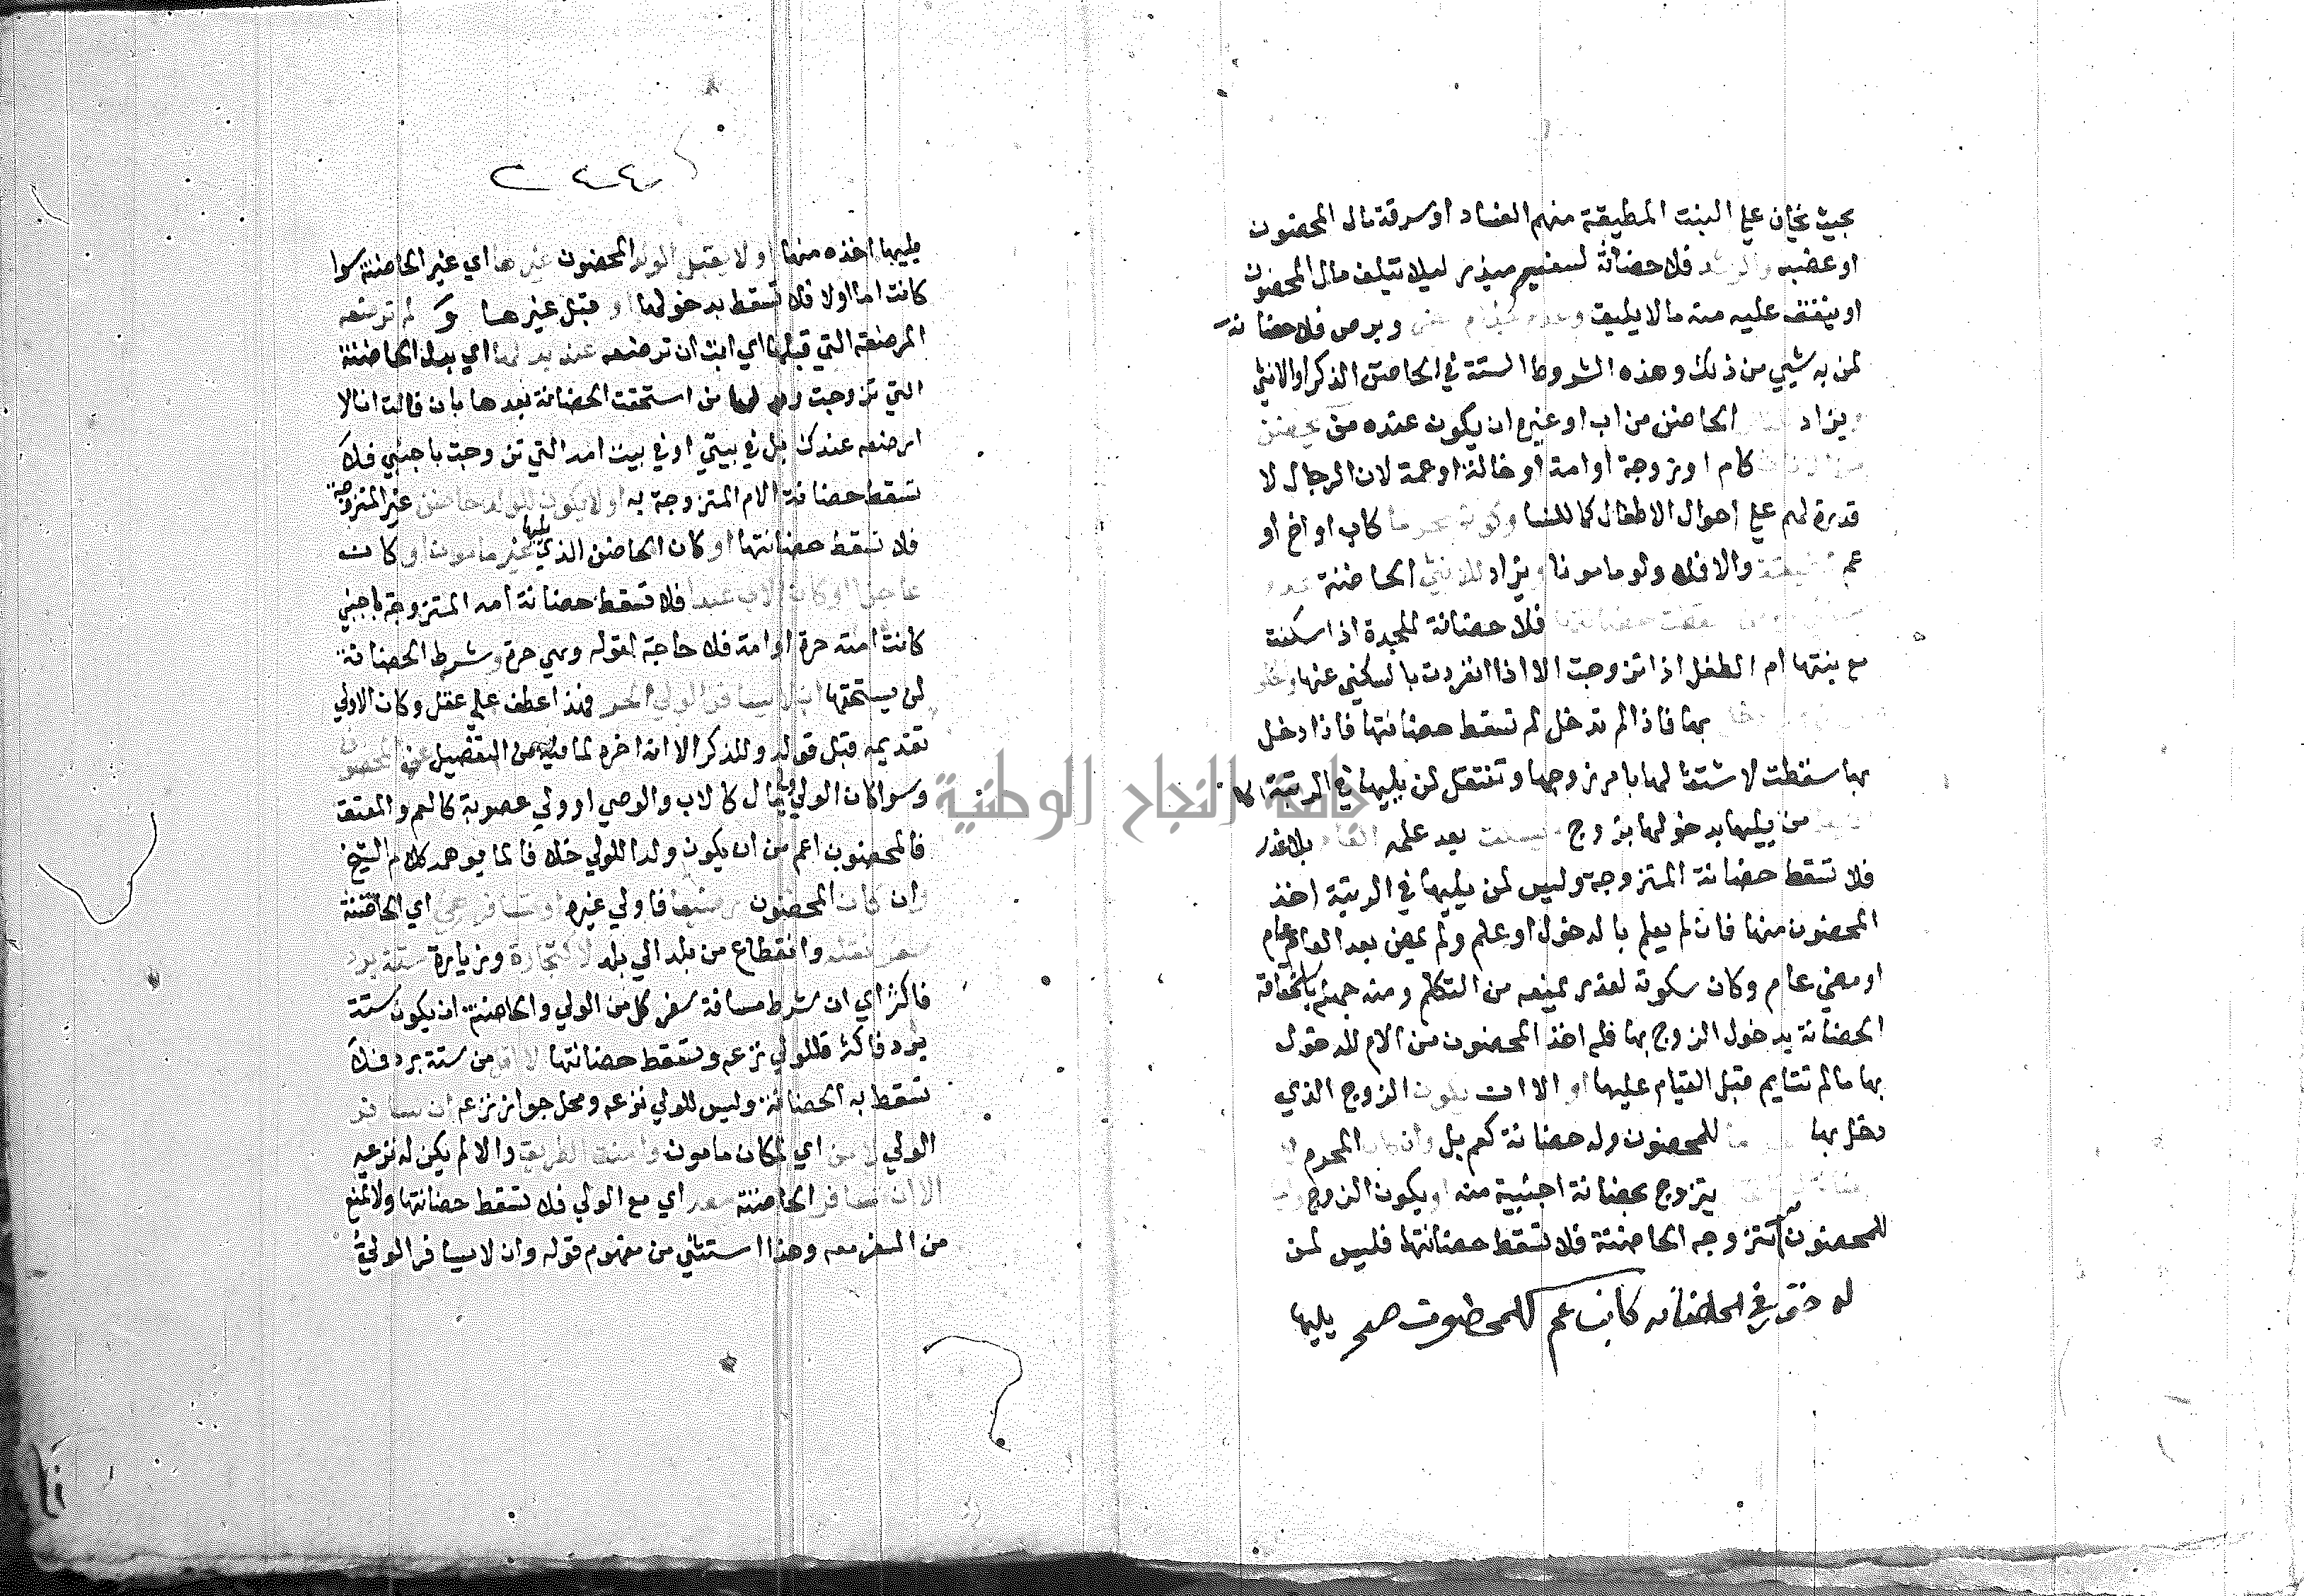 بحيث يخاف علي البنت المطيقة منهم الفساد او سرقة مال المحضون
او غصبه فلا حضانة لسفيه مبذر ليلا يتلف مال المحضون
او ينفق عليه منه ما لا يليق وبرص فلا حضانة
لمن به شيي من ذلك وهذه الشروط الستة في الحاضن الذكر او الانثي
ويزاد الحاضن من اب او غيره ان يكون عنده من يحضن
كام او زوجة او امة او خالة او عمة لان الرجال لا
قدرة لهم علي احوال الاطفال كما للنسا كاب او اخ او
عم والا فلا ولو مامونا ويزاد للانثي الحاضنة
فلا حضانة للجدة اذا سكنت
مع بنتها ام الطفل اذا تزوجت الا اذا انفردت بالسكني عنها
بها فاذا لم تدخل لم تسقط حضانتها فاذا دخل
بها سقطت لاشتغالها بامر زوجها وتنتقل لمن يليها في الرتبة
من يليها بدخولها بزوج بعد علمه بلا عذر
فلا تسقط حضانة المتزوجة وليس لمن يليها في الرتبة اخذ
المحضون منها فان لم يعلم بالدخول او علم ولم يمض بعد العلم عام
او مضي عام وكان سكوته لعذر يمنعه من التكلم ومنه جهله باستحقاقه
الحضانة بدخول الزوج بها فله اخذ المحضون من الام للدخول
بها ما لم تتايم قبل القيام عليها او الا ان يكون الزوج الذي
دخل بها للمحضون وله حضانة كعم بل وان كان المحرم لا
يتزوج بحضانة اجنبية منه او يكون الزوج
للمحضون تتزوجه الحاضنة فلا تسقط حضانتها فليس لمن
له حق في الحاضانه كابن عم للمحظون صح يليها
جامعة النجاح الوطنية
٢٤٤
يليها اخذه منها او لا يقبل الولد المحضون غيرها اي غير الحاضنة سوا
كانت اما او لا فلا تسقط بدخولها او قبل غيرها و لم ترضعه
المرضعة التي قبلها اي ابت ان ترضعه عند اي بدل الحاضنة
التي تزوجت من استحقت الحضانة بعدها بان قالت انا لا
ارضعه عندك بل في بيتي او في بيت امه التي تزوجت باجنبي فلا
تسقط حضانة الام المتزوجة به او لا يكون للولد حاضن غير المتزوجة
فلا تسقط حضانتها او كان الحاضن الذي يليها غير مامون او كان
عاجزا او كان الاب عبدا فلا تسقط حضانة امه المتزوجة باجنبي
كانت امته حرة او امة فلا حاجة لقوله وهي حرة وشرط الحضانة
لمن يستحقها ان لا يسافر الولي الحر فهذا عطف علي عقل وكان الاولي
تقديمه قبل قوله وللذكر الا انه اخره لما فيه من التفصيل عن المحضون
وسوا كان الولي ولي مال كالاب والوصي او ولي عصوبة كالعم والمعتق
فالمحضون اعم من ان يكون ولدا للولي خلافا لما يوهمه كلام الشيخ
وان كان المحضون رضيعا فاولي غيره او تسافر هي اي الحاضنة
سفر نقلة وانقطاع من بلد الي بلد لا لتجارة وزيارة ستة برد
فاكثر اي ان شرط مسافة سفر كل من الولي والحاضنة ان يكون ستة
برد فاكثر فللولي نزعه وتسقط حضانتها لا اقل من ستة برد فلا
تسقط به الحضانة وليس للولي نزعه ومحل جواز نزعه ان سافر
الولي لامن اي لمكان مامون وامنت الطريق والا لم يكن له نزعه
الا ان تسافر الحاضنة معه اي مع الولي فلا تسقط حضانتها ولا تمنع
من السفر معه وهذا استثني من مفهوم قوله وان لا يسافر الولي